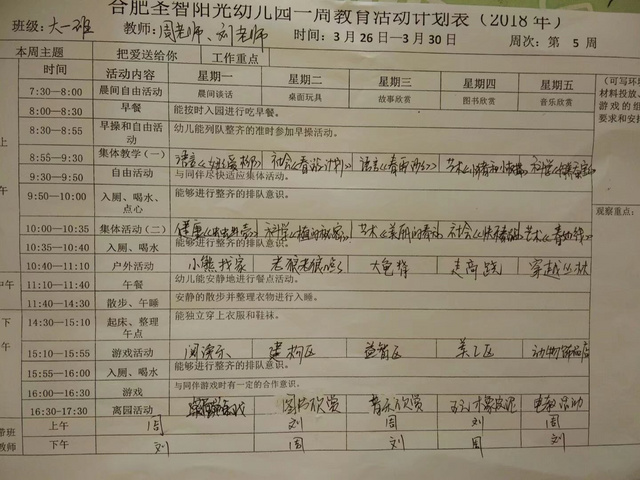 合肥圣智阳光幼儿园一周教育活动计划表（2018年）
班级：大一班 教师：周老师、刘老师 时间：3月26日—3月30日 周次：第 5 周
本周主题 把爱送给你 工作重点
时间 活动内容 星期一 星期二 星期三 星期四 星期五
7:30—8:00 晨间自由活动 晨间谈话 桌面玩具 故事欣赏 图书欣赏 音乐欣赏
8:00—8:30 早餐 能按时入园进行吃早餐。
8:30—8:55 早操和自由活动 幼儿能列队整齐的准时参加早操活动。
8:55—9:30 集体教学（一） 语言 社会《春游计划》 语言《春雨沙沙》 艺术 科学
9:30—9:50 自由活动 与同伴尽快适应集体活动。
9:50—10:00 入厕、喝水、点心 能够进行整齐的排队意识。
10:00—10:35 集体活动（二） 健康 科学 艺术 社会 艺术
10:35—10:40 入厕、喝水 能够进行整齐的排队意识。
10:40—11:10 户外活动 小熊找家 老狼老狼几点了 大毛 走高跷 穿越丛林
11:10—11:40 午餐 幼儿能安静地进行餐点活动。
11:40—14:30 散步、午睡 安静的散步并整理衣物进行入睡。
14:30—15:10 起床、整理 午点 能独立穿上衣服和鞋袜。
15:10—15:55 游戏活动 阅读乐 建构区 益智区 美工区 动物
15:55—16:00 入厕、喝水 能够进行整齐的排队意识。
16:00—16:30 游戏 与同伴游戏时有一定的合作意识。
16:30—17:30 离园活动 桌面游戏 图书欣赏 音乐欣赏 玩橡皮泥 活动
带班教师 上午 周 刘 周 刘 周
下午 刘 周 刘 周 刘
（可写环
材料投放、
游戏的组
要求和安排
观察重点：
上
午
中午
下
午